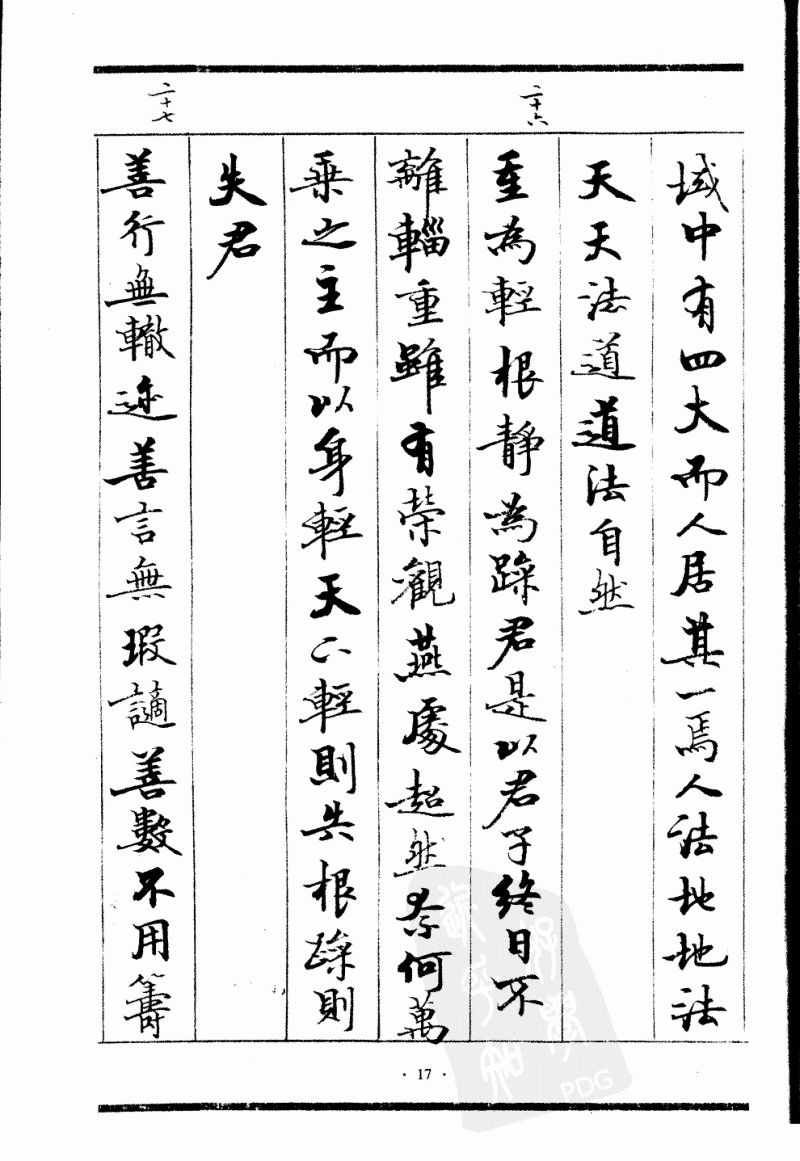 域中有四大而人居其一焉人法地地法
天天法道道法自然
二十六
重為輕根靜為躁君是以君子終日不
離輜重雖有榮觀燕處超然奈何萬
乘之主而以身輕天下輕則失根躁則
失君
二十七
善行無轍迹善言無瑕謫善數不用籌
· 17 ·
PDG